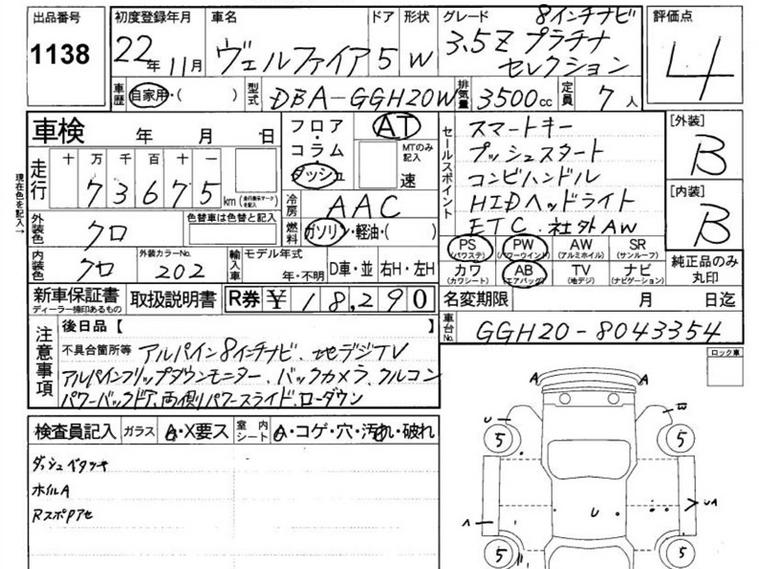 出品番号 初度登録年月 車名 ドア 形状 グレード 8インチナビ 評価点
1138 22年 11月 ヴェルファイア 5 W 3.5Z プラチナ セレクション 4
車歴 自家用・( ) 型式 DBA-GGH20W 排気量 3500cc 定員 7人
車検 年 月 日
フロア・コラム・ダッシュ AT MTのみ記入 速
セールスポイント スマートキー
プッシュスタート
コンビハンドル
HIDヘッドライト
ETC.社外AW
[外装] B
[内装] B
現在色を記入→
走行 十 万 千 百 十 一
73675 km
冷房 AAC
燃料 ガソリン・軽油・( )
外装色 クロ 色替車は色替と記入
内装色 クロ 外装カラーNo. 202 輸入車 モデル年式 年・不明 D車・並 右H・左H
PS (パワステ) PW (パワーウインド) AW (アルミホイル) SR (サンルーフ)
カワ (カワシート) AB (エアバッグ) TV (地デジ) ナビ (ナビゲーション)
純正品のみ丸印
新車保証書 ディーラー捺印あるもの 取扱説明書 R券 ¥ 18,290 名変期限 月 日迄
車台No. GGH20-8043354
注意事項 後日品【 】
不具合箇所等 アルパイン8インチナビ、地デジTV
アルパインフリップダウンモニター、バックカメラ、クルコン
パワーバックドア、両側パワースライド、ローダウン
ロック車
検査員記入 ガラス A・X要ス 室内シート A・コゲ・穴・汚れ・破れ
ダッシュベタツキ
ホイルA
A A
U
5 5
U
UA
5 5